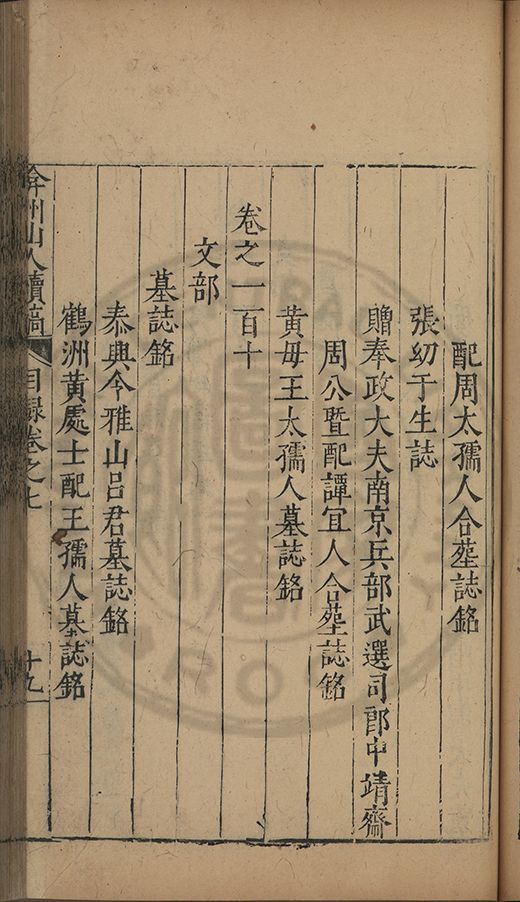 配周太孺人合塟誌銘
張㓜于生誌
贈奉政大夫南京兵部武選司郎中靖齋
周公暨配譚宜人合塟誌銘
黄母王太孺人墓誌銘
卷之一百十
文部
墓誌銘
泰興令雅山呂君墓誌銘
鶴洲黄處士配王孺人墓誌銘
弇州山人續稿
目録卷之七
十九